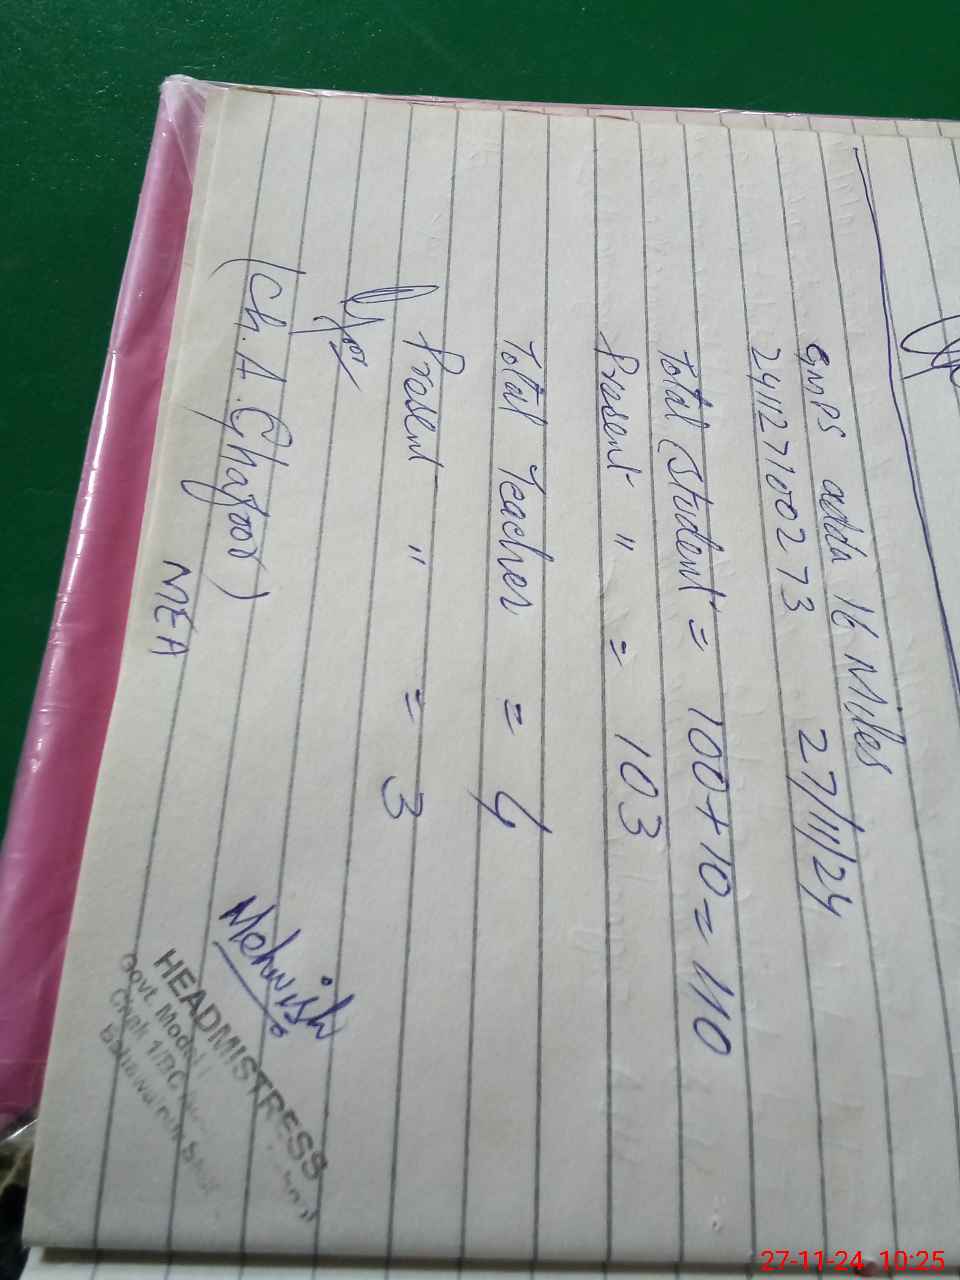 GMPS adda 16 Miles
2411271002 73    27/11/24
Total Student = 100+10 = 110
Present " = 103
Total Teacher = 4
Present " = 3
(Ch. A. Ghafoor)
MEA
Mehwish
HEADMISTRESS
Govt. Model
Chak 1/BC
27-11-24 10:25